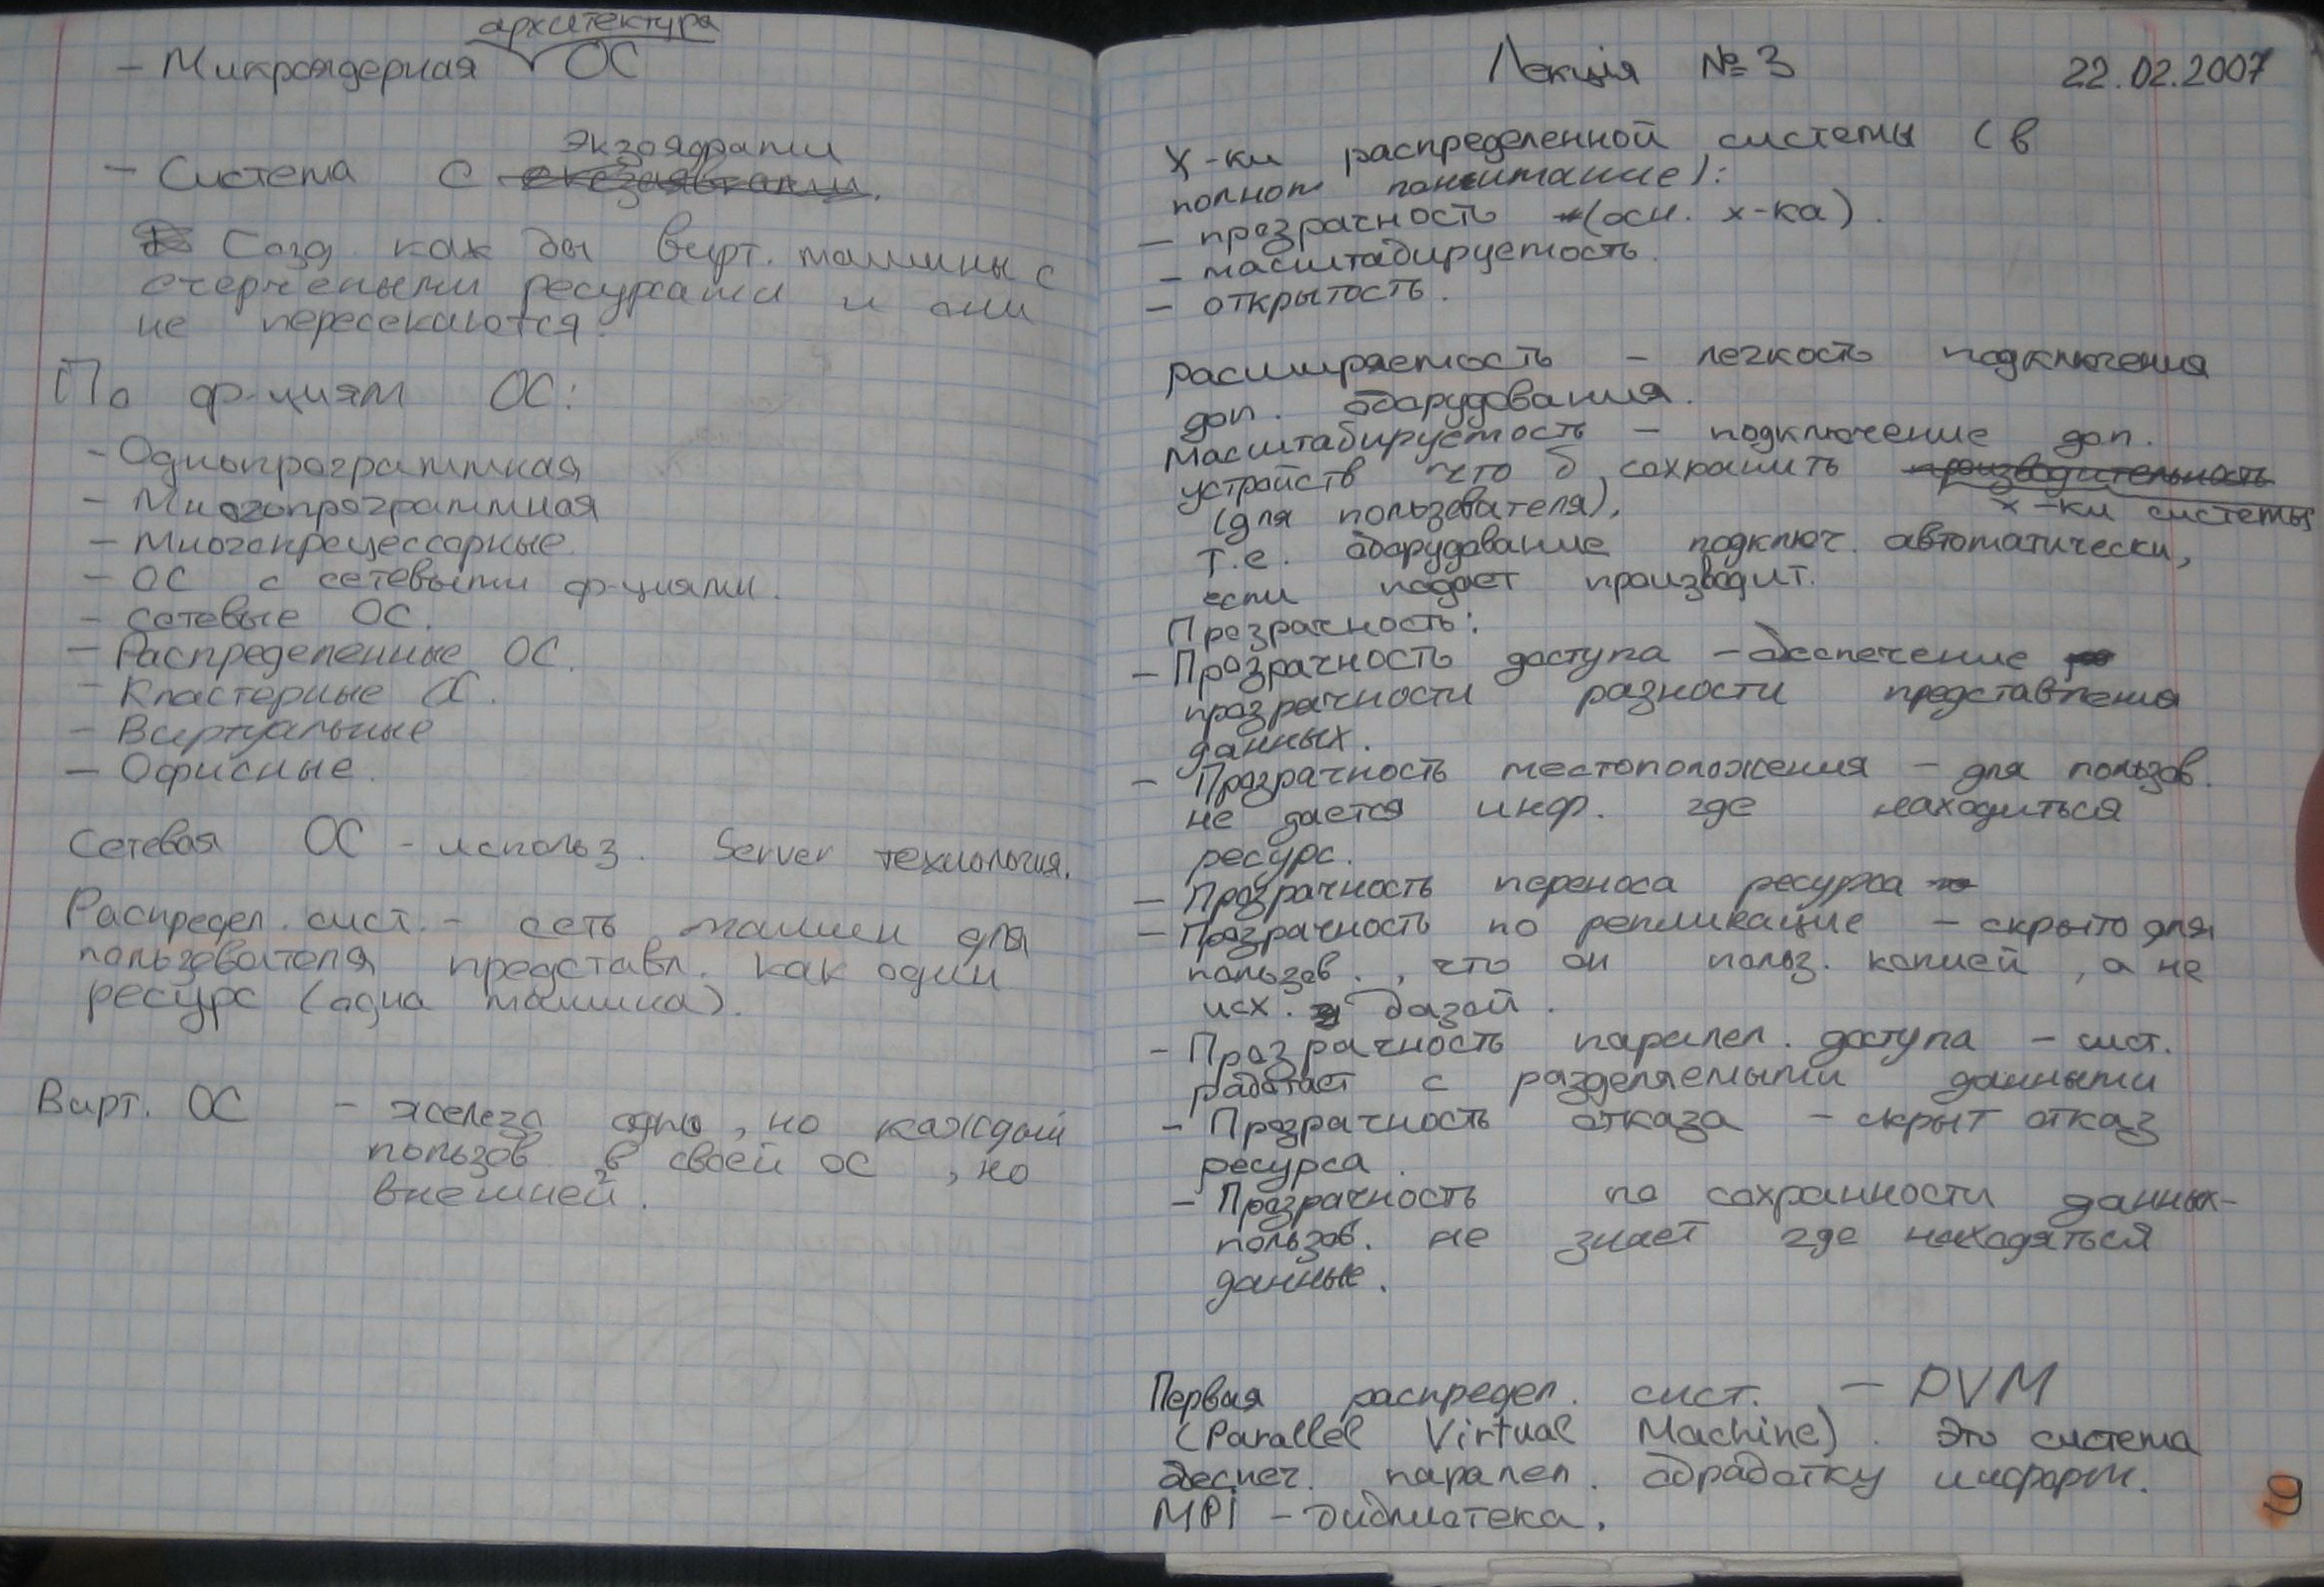 архитектура
- Микроядерная ОС
экзоядрами
- Система с
Созд. как бы вирт. машины с
очерчеными ресурсами и они
не пересекаются.
По ф-циям ОС:
- Однопрограммная
- Многопрограммная
- Многопроцессорные
- ОС с сетевыми ф-циями.
- Сетевые ОС.
- Распределенные ОС.
- Кластерные ОС.
- Виртуальные
- Офисные.
Сетевая ОС - использ. Server технология.
Распредел. сист. - сеть машин для
пользователя представл. как один
ресурс (одна машина).
Вирт. ОС - железо одно, но каждый
пользов. в своей ОС, но
внешней.
Лекція №3 22.02.2007
Х-ки распределенной системы (в
полном понимание):
- прозрачность (осн. х-ка).
- масштабируемость.
- открытость.
Расширяемость - легкость подключения
доп. оборудования.
Масштабируемость - подключение доп.
устройств что б сохранить производительность
(для пользователя), х-ки системы
т.е. оборудование подключ. автоматически,
если падает производит.
Прозрачность:
- Прозрачность доступа - обеспечение
прозрачности разности представления
данных.
- Прозрачность местоположения - для пользов.
не дается инф. где находиться
ресурс.
- Прозрачность переноса ресурса
- Прозрачность по репликацие - скрыто для
пользов., что он польз. копией, а не
исх. базой.
- Прозрачность паралел. доступа - сист.
работает с разделяемыми данными
- Прозрачность отказа - скрыт отказ
ресурса.
- Прозрачность по сохранности данных -
пользов. не знает где находяться
данные.
Первая распредел. сист. - PVM
(Parallel Virtual Machine). Это система
обеспеч. паралел. обработку информ.
MPI - библиотека.